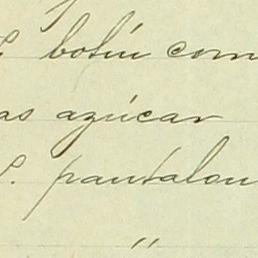 botin com
as azúcar
pantalon
"